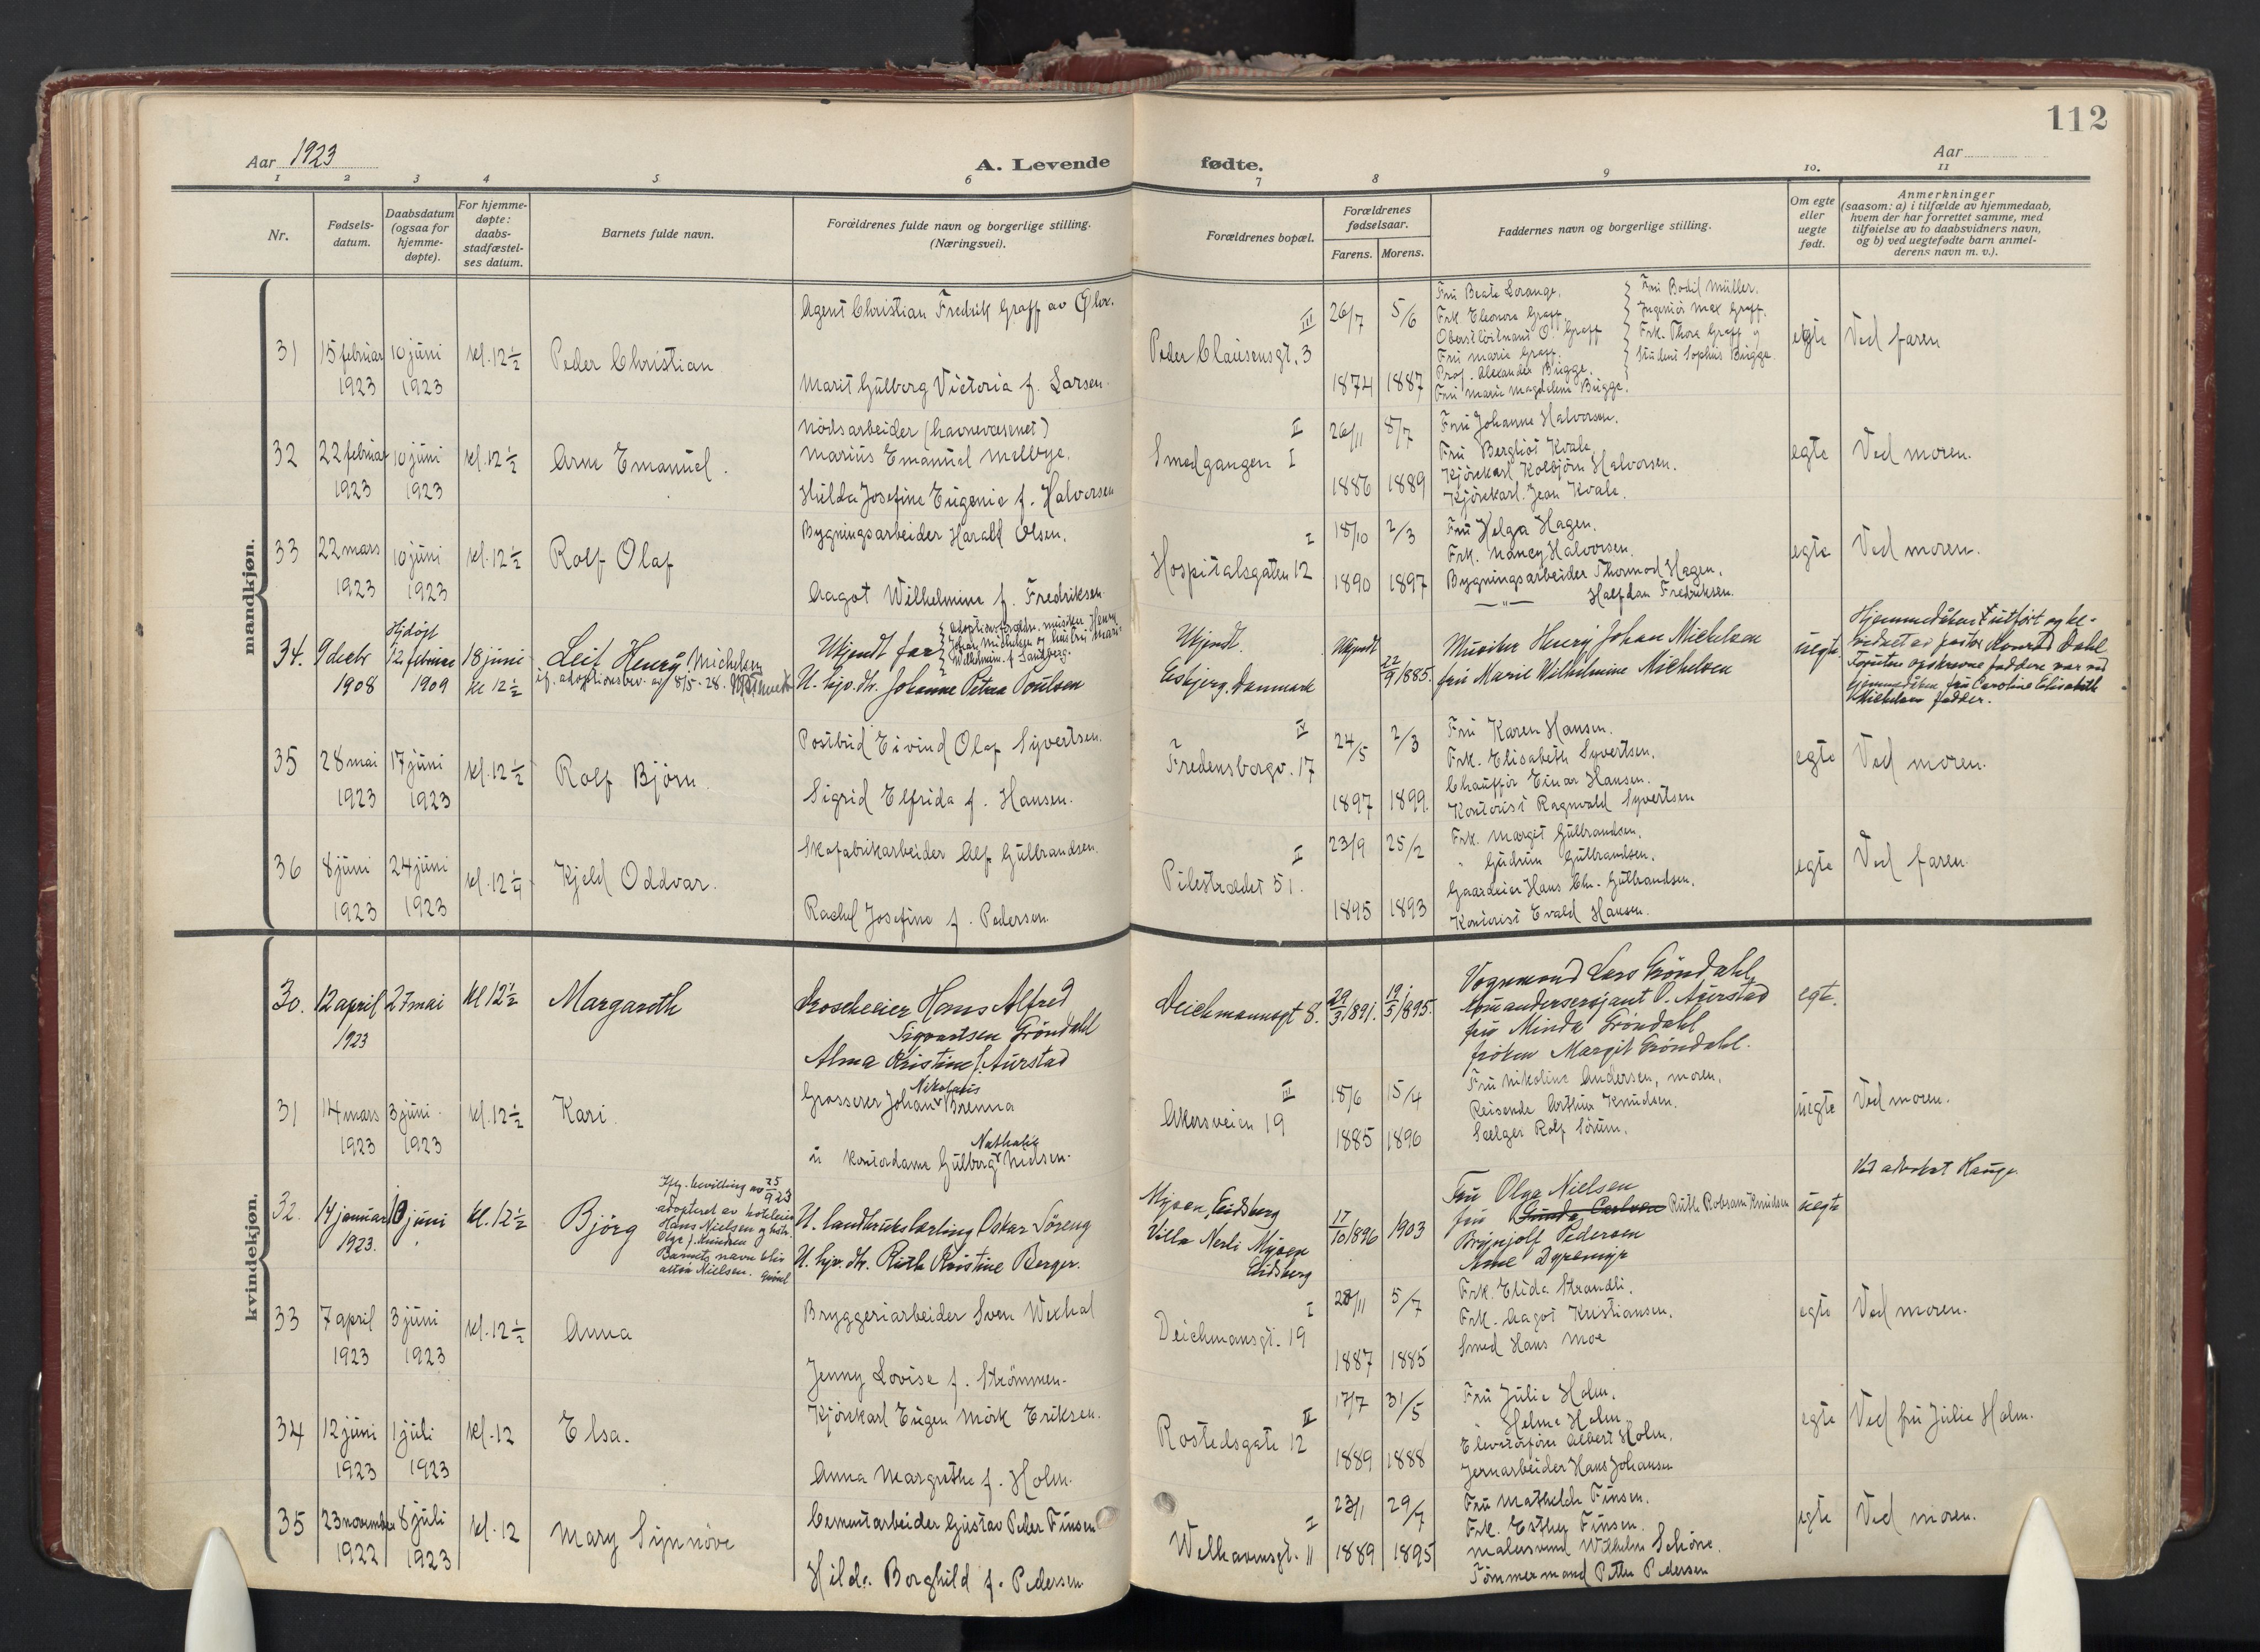 112
Aar 1923
A. Levende fødte.
Aar
1 2 3 4 5 6 7 8 9 10. 11
Nr.
Fødsels-
datum.
Daabsdatum
(ogsaa for
hjemme-
døpte).
For hjemme-
døpte:
daabs-
stadfæstel-
ses datum.
Barnets fulde navn.
Forældrenes fulde navn og borgerlige stilling.
(Næringsvei).
Forældrenes bopæl.
Forældrenes
fødselsaar.
Farens. Morens.
Faddernes navn og borgerlige stilling.
Om egte
eller
uegte
født.
Anmerkninger
(saasom: a) i tilfælde av hjemmedaab,
hvem der har forrettet samme, med
tilføielse av to daabsvidners navn,
og b) ved uegtefødte barn anmel-
derens navn m. v.).
mandkjøn.
31
15 februar
1923
10 juni
1923
kl. 12 ½
Peder Christian
Agent Christian Fredrik Graff av
Marit Gulborg Victoria f. Larsen.
III
Peder Clausensgt. 3
26/7
1874
5/6
1887
Fru Beate Lorange.
Frk. Eleonora Graff.
Oberstløitnant O. Graff
Fru Marie Graff.
Prof. Alexander Bugge.
Fru Maria Magdalena Bugge.
Fru Bodil Müller.
Ingeniør Max Graff.
Frk. Thora Graff og
Student Sophus Bugge.
egte
Ved faren
32
22 februar
1923
10 juni
1923
kl. 12 ½
Arne Emanuel.
Nødsarbeider (havnevæsenet)
Marius Emanuel Mellbye.
Hulda Josefine Eugenie f. Halvorsen
II
Smedgangen I
26/11
1886
8/7
1889
Fru Johanne Halvorsen.
Fru Bergliot Kvale.
Kjørekarl Kolbjørn Halvorsen.
Kjørekarl. Jean Kvale.
egte
Ved moren.
33
22 mars
1923
10 juni
1923
kl. 12 ½
Rolf Olaf
Bygningsarbeider Harald Olsen.
Aagot Wilhelmine f. Fredriksen.
I
Hospitalsgaten 12
18/10
1890
2/3
1897
Fru Helga Hagen.
Frk. Nancy Halvorsen.
Bygningsarbeider Thormod Hagen.
—"— Halfdan Fredriksen.
egte
Ved moren.
34.
9 decbr
1908
Hjdøpt
12 februar
1909
18 juni
kl 12 ½
Leif Henry Michelsen
if. adoptionsbev. av 8/5-28.
Ukjendt far
Adoptivforældre: musiker Henry
Johan Michelsen og hustru Marie
Wilhelmine f. Sandberg.
U. hjv. dtr. Johanne Petrea Poulsen
Ukjendt.
Esbjerg, Danmark
Ukjendt
22/9 1885.
Musiker Henry Johan Michelsen
fru Marie Wilhelmine Michelsen
uegte
Hjemmedåben utført og be-
vidnet av pastor Konrad Dahl
Foruten opskrevne faddere var ved
hjemmedåben fru Caroline Elisabeth
Michelsen fadder.
35
28 mai
1923
17 juni
1923
kl. 12 ½
Rolf Bjørn.
Postbud Eivind Olaf Syvertsen.
Sigrid Elfrida f. Hansen.
IV
Fredensborgv. 17
24/5
1897
2/3
1899.
Fru Karen Hansen.
Frk. Elisabeth Syvertsen.
Chauffør Einar Hansen.
Kontorist Ragnvald Syvertsen
egte
Ved moren.
36
8 juni
1923
24 juni
1923
kl. 12
Kjeld Oddvar.
Skofabrikarbeider Alf Gulbrandsen.
Rachel Josefine f. Pedersen
II
Pilestrædet 51.
23/9
1895
25/2
1893
Frk. Margit Gulbrandsen.
" Gudrun Gulbrandsen.
Gaardeier Hans Chr. Gulbrandsen.
Kontorist Evald Hansen.
egte
Ved faren.
kvindekjøn.
30.
12 april
1923
27 mai
kl 12 ½
Margareth
Droscheeier Hans Alfred
Sigvartsen Grøndahl
Alma Kristine f. Aurstad
Deichmannsgt 8.
29/3 1891.
19/5 1895.
Vognmand Lars Grøndahl,
Komandersersjant O. Aurstad
fru Minda Grøndahl
frøken Margit Grøndahl.
egte.
31
14 mars
1923
3 juni
1923
kl. 12 ½
Kari
Grosserer Johan Nikolaus Brenna
u kontordame Gulborg Nathalie Nielsen.
III
Akersveien 19
18/6
1885
15/4
1896
Fru Nikoline Andersen, moren,
Reisende Arthur Knudsen.
Sælger Rolf Sørum.
uegte
Ved moren.
32.
14 januar
1923.
10 juni
kl. 12 ½
Bjørg
Iflg. bevilling av 25/9 23
adopteret av hoteleier
Hans Nielsen og hustr.
Olga f. Knudsen
Barnets navn blir
altså Nielsen.
U. landbrukslærling Oskar Søreng
U. hjv. dtr. Ruth Kristine Berger.
Mysen, Eidsberg
Villa Nerli Mysen
Eidsberg
17/10 1896
1903
Fru Olga Nielsen
fru Gunda Carlsen Ruth Robsram Knudsen
Brynjolf Pedersen
Arne
uegte
Ved advokat Hauge
33
7 april
1923
3 juni
1923
kl. 12 ½
Anna
Bryggeriarbeider Sven Wexhal
Jenny Lovise f. Strømmen.
I
Deichmansgt. 19
28/11
1887
5/7
1885
Frk. Elida Strandli.
Frk. Aagot Kristiansen.
Smed Hans Moe
egte
Ved moren.
34
12 juni
1923
1 juli
1923
kl. 12
Elsa.
Kjørekarl Eugen Mørk Eriksen.
Anna Margrethe f. Holm.
II
Rostedsgate 12
17/7
1889
31/5
1888
Fru Julie Holm.
" Helma Holm
Elevatorfører Albert Holm.
Jernarbeider Hans Johansen
egte
Ved fru Julie Holm.
35
23 november
1922
8 juli
1923
kl. 12
Mary Synnøve
Cementarbeider Gustav Peder Finsen
Hilda Borghild f. Pedersen
I
Welhavensgt. 11
23/1
1889
29/7
1895
Fru Mathilde Finsen.
Frk. Esther Finsen.
Malersvend Wilhelm Schöne.
Tømmermand Petter Pedersen
egte
Ved moren.